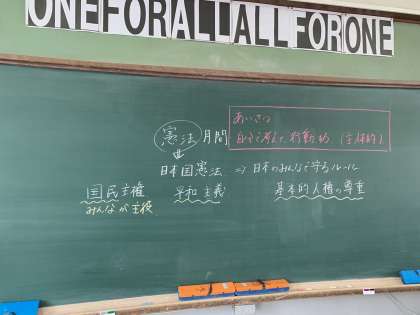 ONE FOR ALL ALL FOR ONE
あいさつ
憲法月間 自分で考えて行動 (主体的)
⇓
日本国憲法 ⇒ 日本のみんなで守るルール
国民主権 平和主義 基本的人権の尊重
みんなが主役